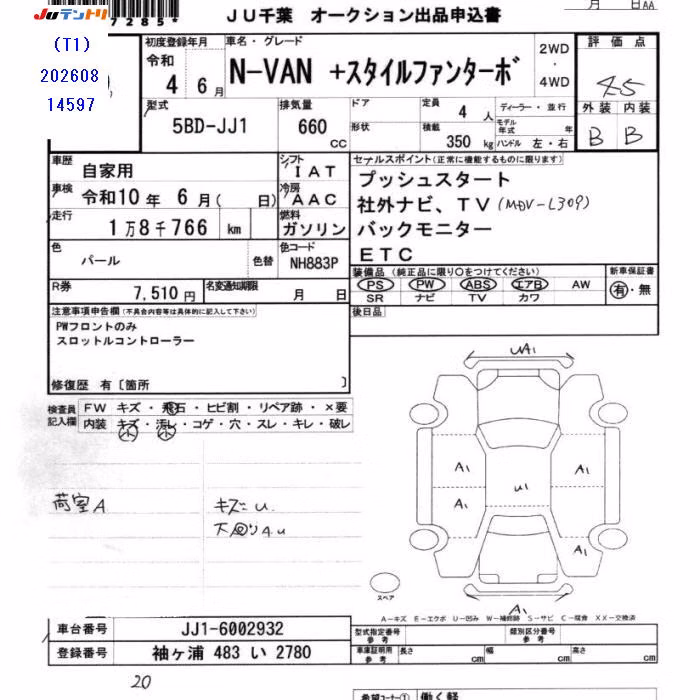 JUテントリ
7285*
JU千葉 オークション出品申込書
月 日AA
(T1)
202608
14597
初度登録年月
令和
4 年 6 月
車名・グレード
N-VAN +スタイルファンターボ
2WD
・
4WD
評価点
4.5
外装 内装
B B
型式
5BD-JJ1
排気量
660 CC
ドア
形状
定員 4 人
積載 350 kg
ディーラー・並行
モデル年式 年
ハンドル 左・右
車歴
自家用
シフト
IAT
車検
令和10年 6月( 日)
冷房
AAC
走行
1万8千766 km
燃料
ガソリン
色
パール
色替
色コード
NH883P
R券
7,510円
名変通知期限
月 日
セールスポイント(正常に機能するものに限ります)
プッシュスタート
社外ナビ、TV(MDV-L309)
バックモニター
ETC
装備品(純正品に限り○をつけてください)
PS PW ABS エアB AW
SR ナビ TV カワ
新車保証書
有・無
後日品
注意事項申告欄(不具合内容等は具体的に記入して下さい)
PWフロントのみ
スロットルコントローラー
修復歴 有〔箇所 〕
検査員
記入欄
FW キズ・飛石・ヒビ割・リペア跡・×要
内装 キズ・汚レ・コゲ・穴・スレ・キレ・破レ
小 小
荷室A
キズ=U
下回り4.U
UA1
A1 A1
A1
U1
A1
A1
スペア
A-キズ E-エクボ U-凹み W-補修跡 S-サビ C-腐食 XX-交換済
車台番号 JJ1-6002932
登録番号 袖ヶ浦 483 い 2780
型式指定番号
参考
類別区分番号
参考
車庫証明用
参考
長さ cm 幅 cm 高さ cm
20
希望コーナー① 働く軽